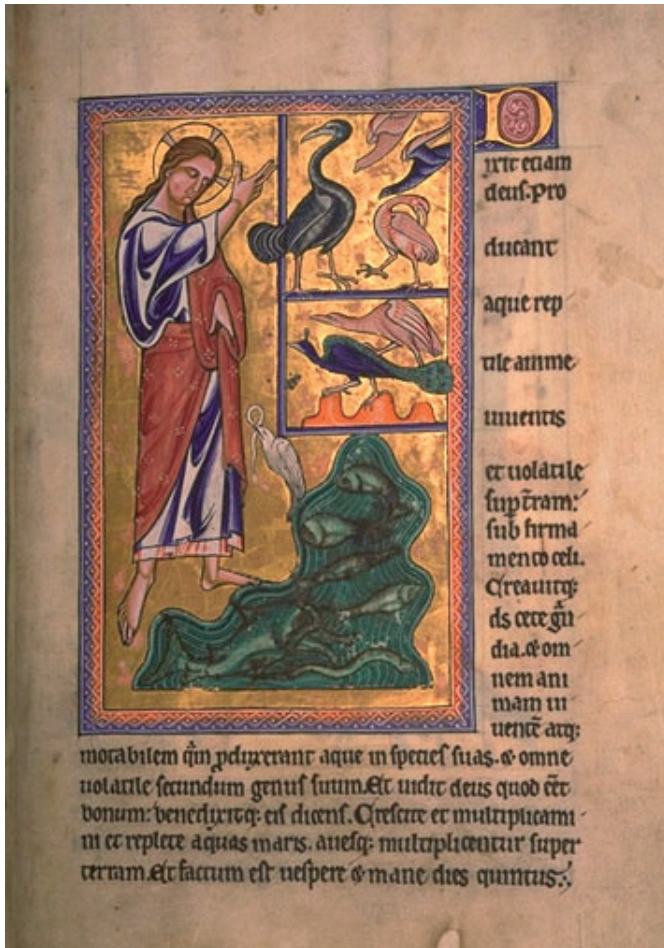 D
ixit eciam
deus. Pro
ducant
aque rep
tile anime
uiuentis
et uolatile
sup t̄ram:
sub firma
mento celi.
Creauitq;
ds cete gn̄
dia. & om
nem ani
mam ui
uentē atq;
motabilem qm̄ pduxerant aque in species suas. & omne
uolatile secundum genus suum. Et uidit deus quod eēt
bonum: benedixitq; eis dicens. Crescite et multiplicami
ni et replete aquas maris. auesq; multiplicentur super
terram. Et factum est uespere & mane dies quintus.